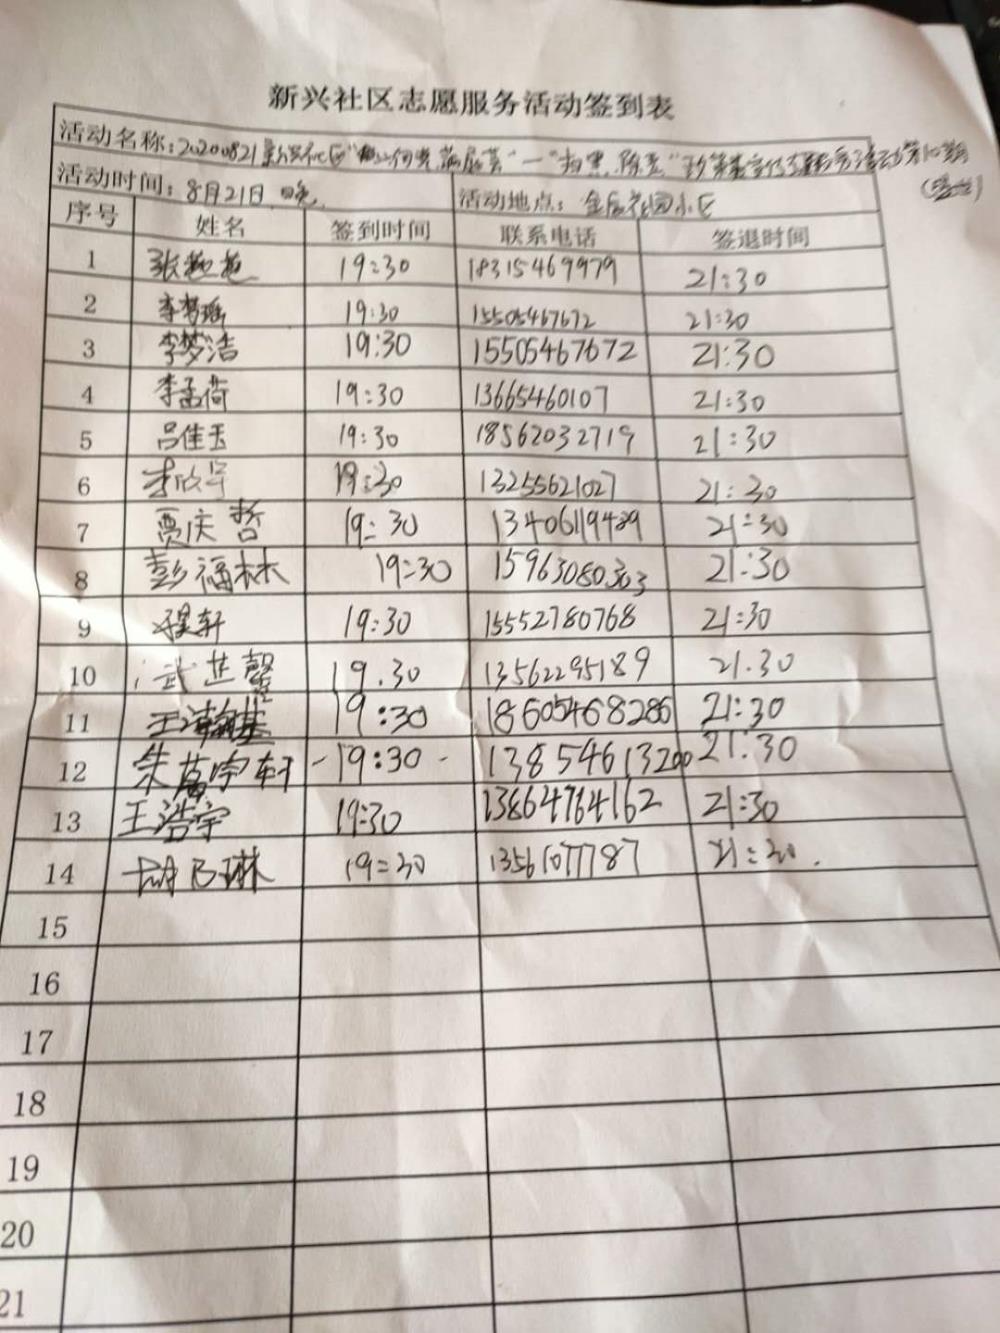 新兴社区志愿服务活动签到表
活动名称:20200821新兴社区 "扫黑除恶" 政策宣传 活动第10期
活动时间: 8月21日 晚 活动地点: 花园小区
序号 姓名 签到时间 联系电话 签退时间
1 张 19:30 18315469979 21:30
2 李梦瑶 19:30 15505467672 21:30
3 李梦洁 19:30 15505467672 21:30
4 李孟荷 19:30 13665460107 21:30
5 吕佳玉 19:30 18562032719 21:30
6 李欣宇 19:30 13255621027 21:30
7 贾庆哲 19:30 13406119489 21:30
8 彭福林 19:30 15963080303 21:30
9 程轩 19:30 15552780768 21:30
10 武芷馨 19.30 13562295189 21.30
11 王 19:30 18605468286 21:30
12 朱 宇轩 19:30 13854613200 21:30
13 王浩宇 19:30 13864764162 21:30
14 胡乃琳 19:30 13561077787 21:30.
15
16
17
18
19
20
21